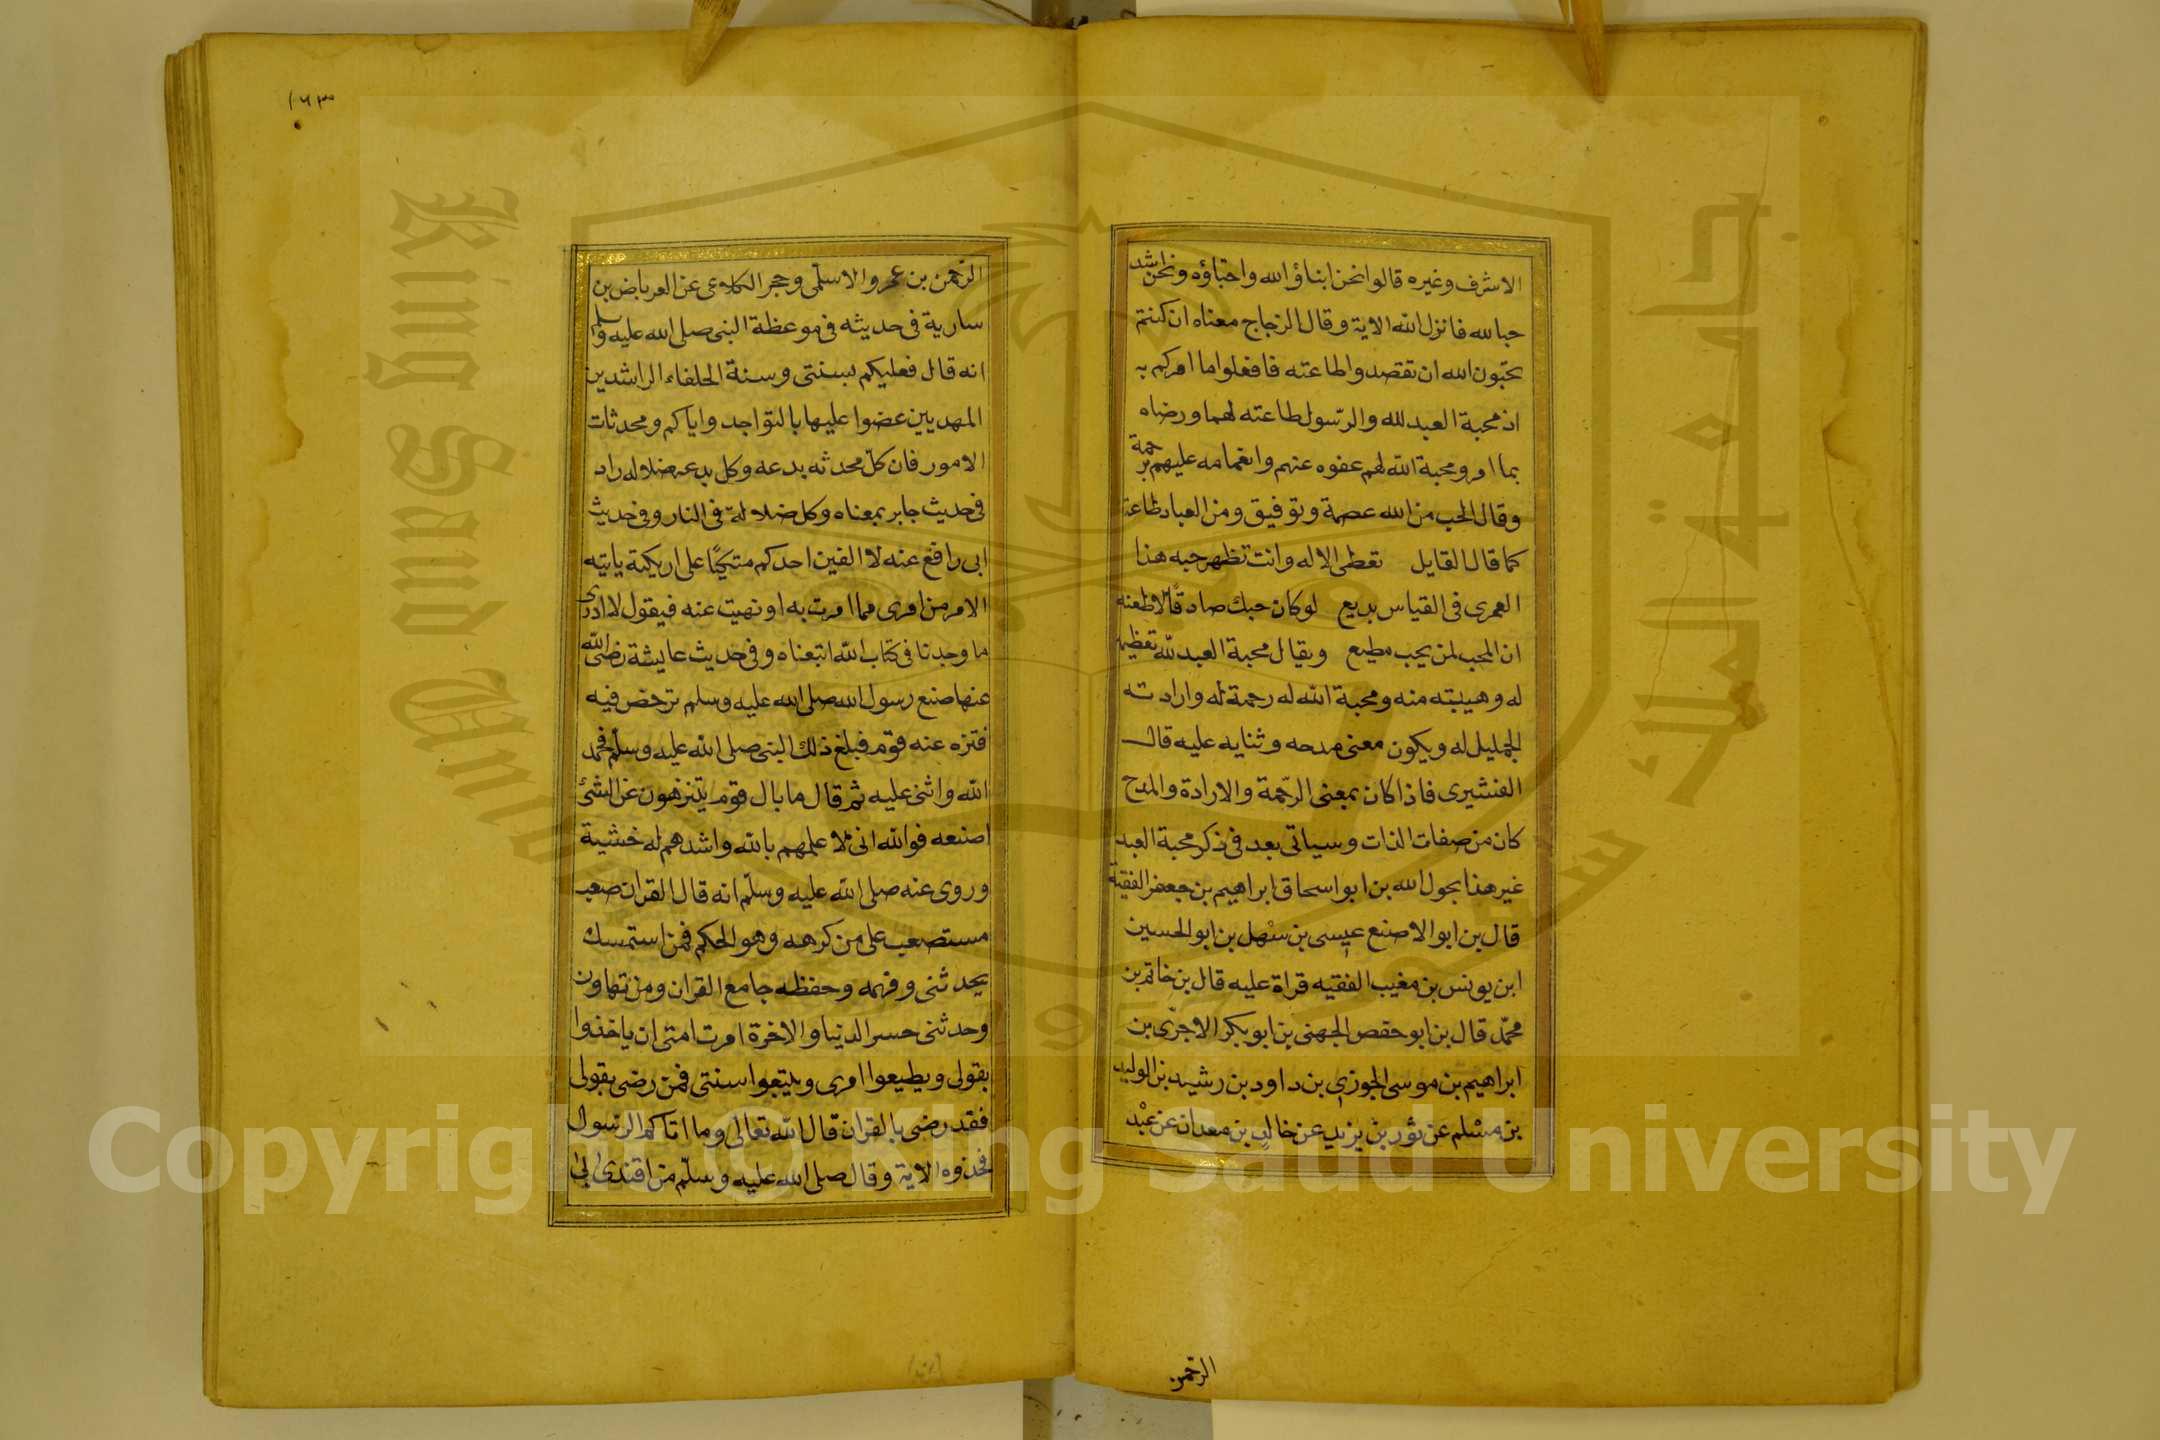 الاشرف وغيره قالوا نحن ابناؤ الله واحباؤه ونحن اشد
حبا لله فانزل الله الاية وقال الزجاج معناه ان كنتم
تحبّون الله ان تقصدوا طاعته فافعلوا ما امركم به
اذ محبة العبد لله والرّسول طاعته لهما ورضاه
بما امر ومحبة الله لهم عفوه عنهم وانعامه عليهم برحمة
وقال الحب من الله عصمة وتوفيق ومن العباد طاعة
كما قال القايل تعطى الاله وانت تظهر حبه هذا
العمرى فى القياس بديع لو كان حبك صادقًا لاطعته
ان المحب لمن يحب مطيع ويقال محبة العبد لله تعظيم
له وهيبته منه ومحبة الله له رحمة له وارادته
الجميل له ويكون معنى مدحه وثنايه عليه قال
القشيرى فاذا كان بمعنى الرحمة والارادة والمدح
كان من صفات الذات وسياتى بعد فى ذكر محبة العبد
غير هذا بحول الله بن ابو اسحاق ابراهيم بن جعفر الفقيه
قال بن ابو الاصنع عيسى بن سهل بن ابو الحسين
ابن يونس بن مغيب الفقيه قراة عليه قال بن خاتم بن
محمّد قال بن ابو حفص الجهنى بن ابو بكر الاجرّى بن
ابراهيم بن موسى الجوزى بن داود بن رشيد بن الوليد
بن مسلم عن ثور بن يزيد عن خالد بن معدان عن عبد
الرّحمن
١٦٣
الرّحمن بن عمرو الاسلمى وحجر الكلاعى عن العرباض بن
سارية فى حديثه فى موعظة النبى صلى الله عليه وسلم
انه قال فعليكم بسنتى وسنة الخلفاء الراشدين
المهديين عضوا عليها بالنواجد واياكم ومحدثات
الامور فان كلّ محدثه بدعه وكل بدعه ضلاله زاد
فى حديث جابر بمعناه وكل ضلالة فى النار وفى حديث
ابى رافع عنه لا الفين احدكم متكئًا على اريكته ياتيه
الامر من امرى مما امرت به او نهيت عنه فيقول لا ادرى
ما وجدنا فى كتاب الله اتبعناه وفى حديث عايشة رضى الله
عنها صنع رسول الله صلى الله عليه وسلم ترخض فيه
فتنزه عنه قوم فبلغ ذلك النبى صلى الله عليه وسلم فحمد
الله واثنى عليه ثم قال ما بال قوم يتنزهون عن الشئ
اصنعه فوالله انى لا علمهم بالله واشدهم له خشية
وروى عنه صلى الله عليه وسلّم انه قال القران صعب
مستصعب على من كرهه وهو الحكم فمن استمسك
بحدثنى وفهمه وحفظه جامع القران ومن تهاون
وحدثنى خسر الدنيا والاخرة امرت امتى ان ياخذوا
بقولى ويطيعوا امرى ويتبعوا سنتى فمن رضى بقولى
فقد رضى بالقران قال الله تعالى وما اتاكم الرسول
فخذوه الاية وقال صلى الله عليه وسلّم من اقتدى بى
Copyright © King Saud University
King Saud University
جامعة الملك سعود
1957